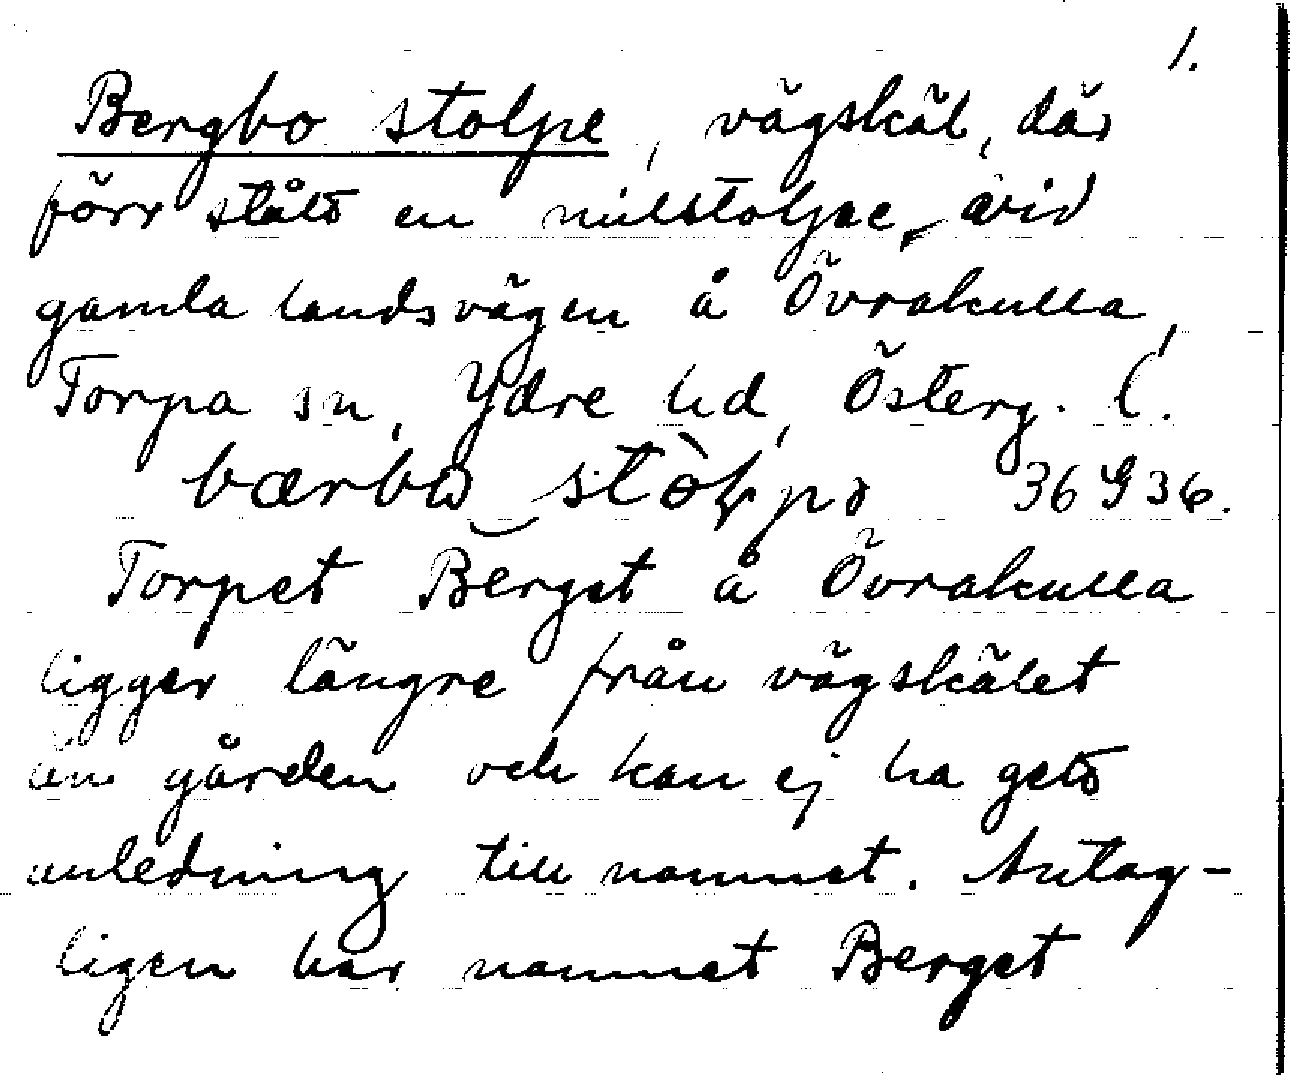 1.
Bergbo stolpe, vägskäl, där
förr stått en milstolpe, vid
gamla landsvägen å Övrakulla,
Torpa sn, Ydre hd, Österg. l.
36 G 36.
Torpet Berget å Övrakulla
ligger längre från vägskälet
än gården och kan ej ha gett
anledning till namnet. Antag-
ligen har namnet Berget